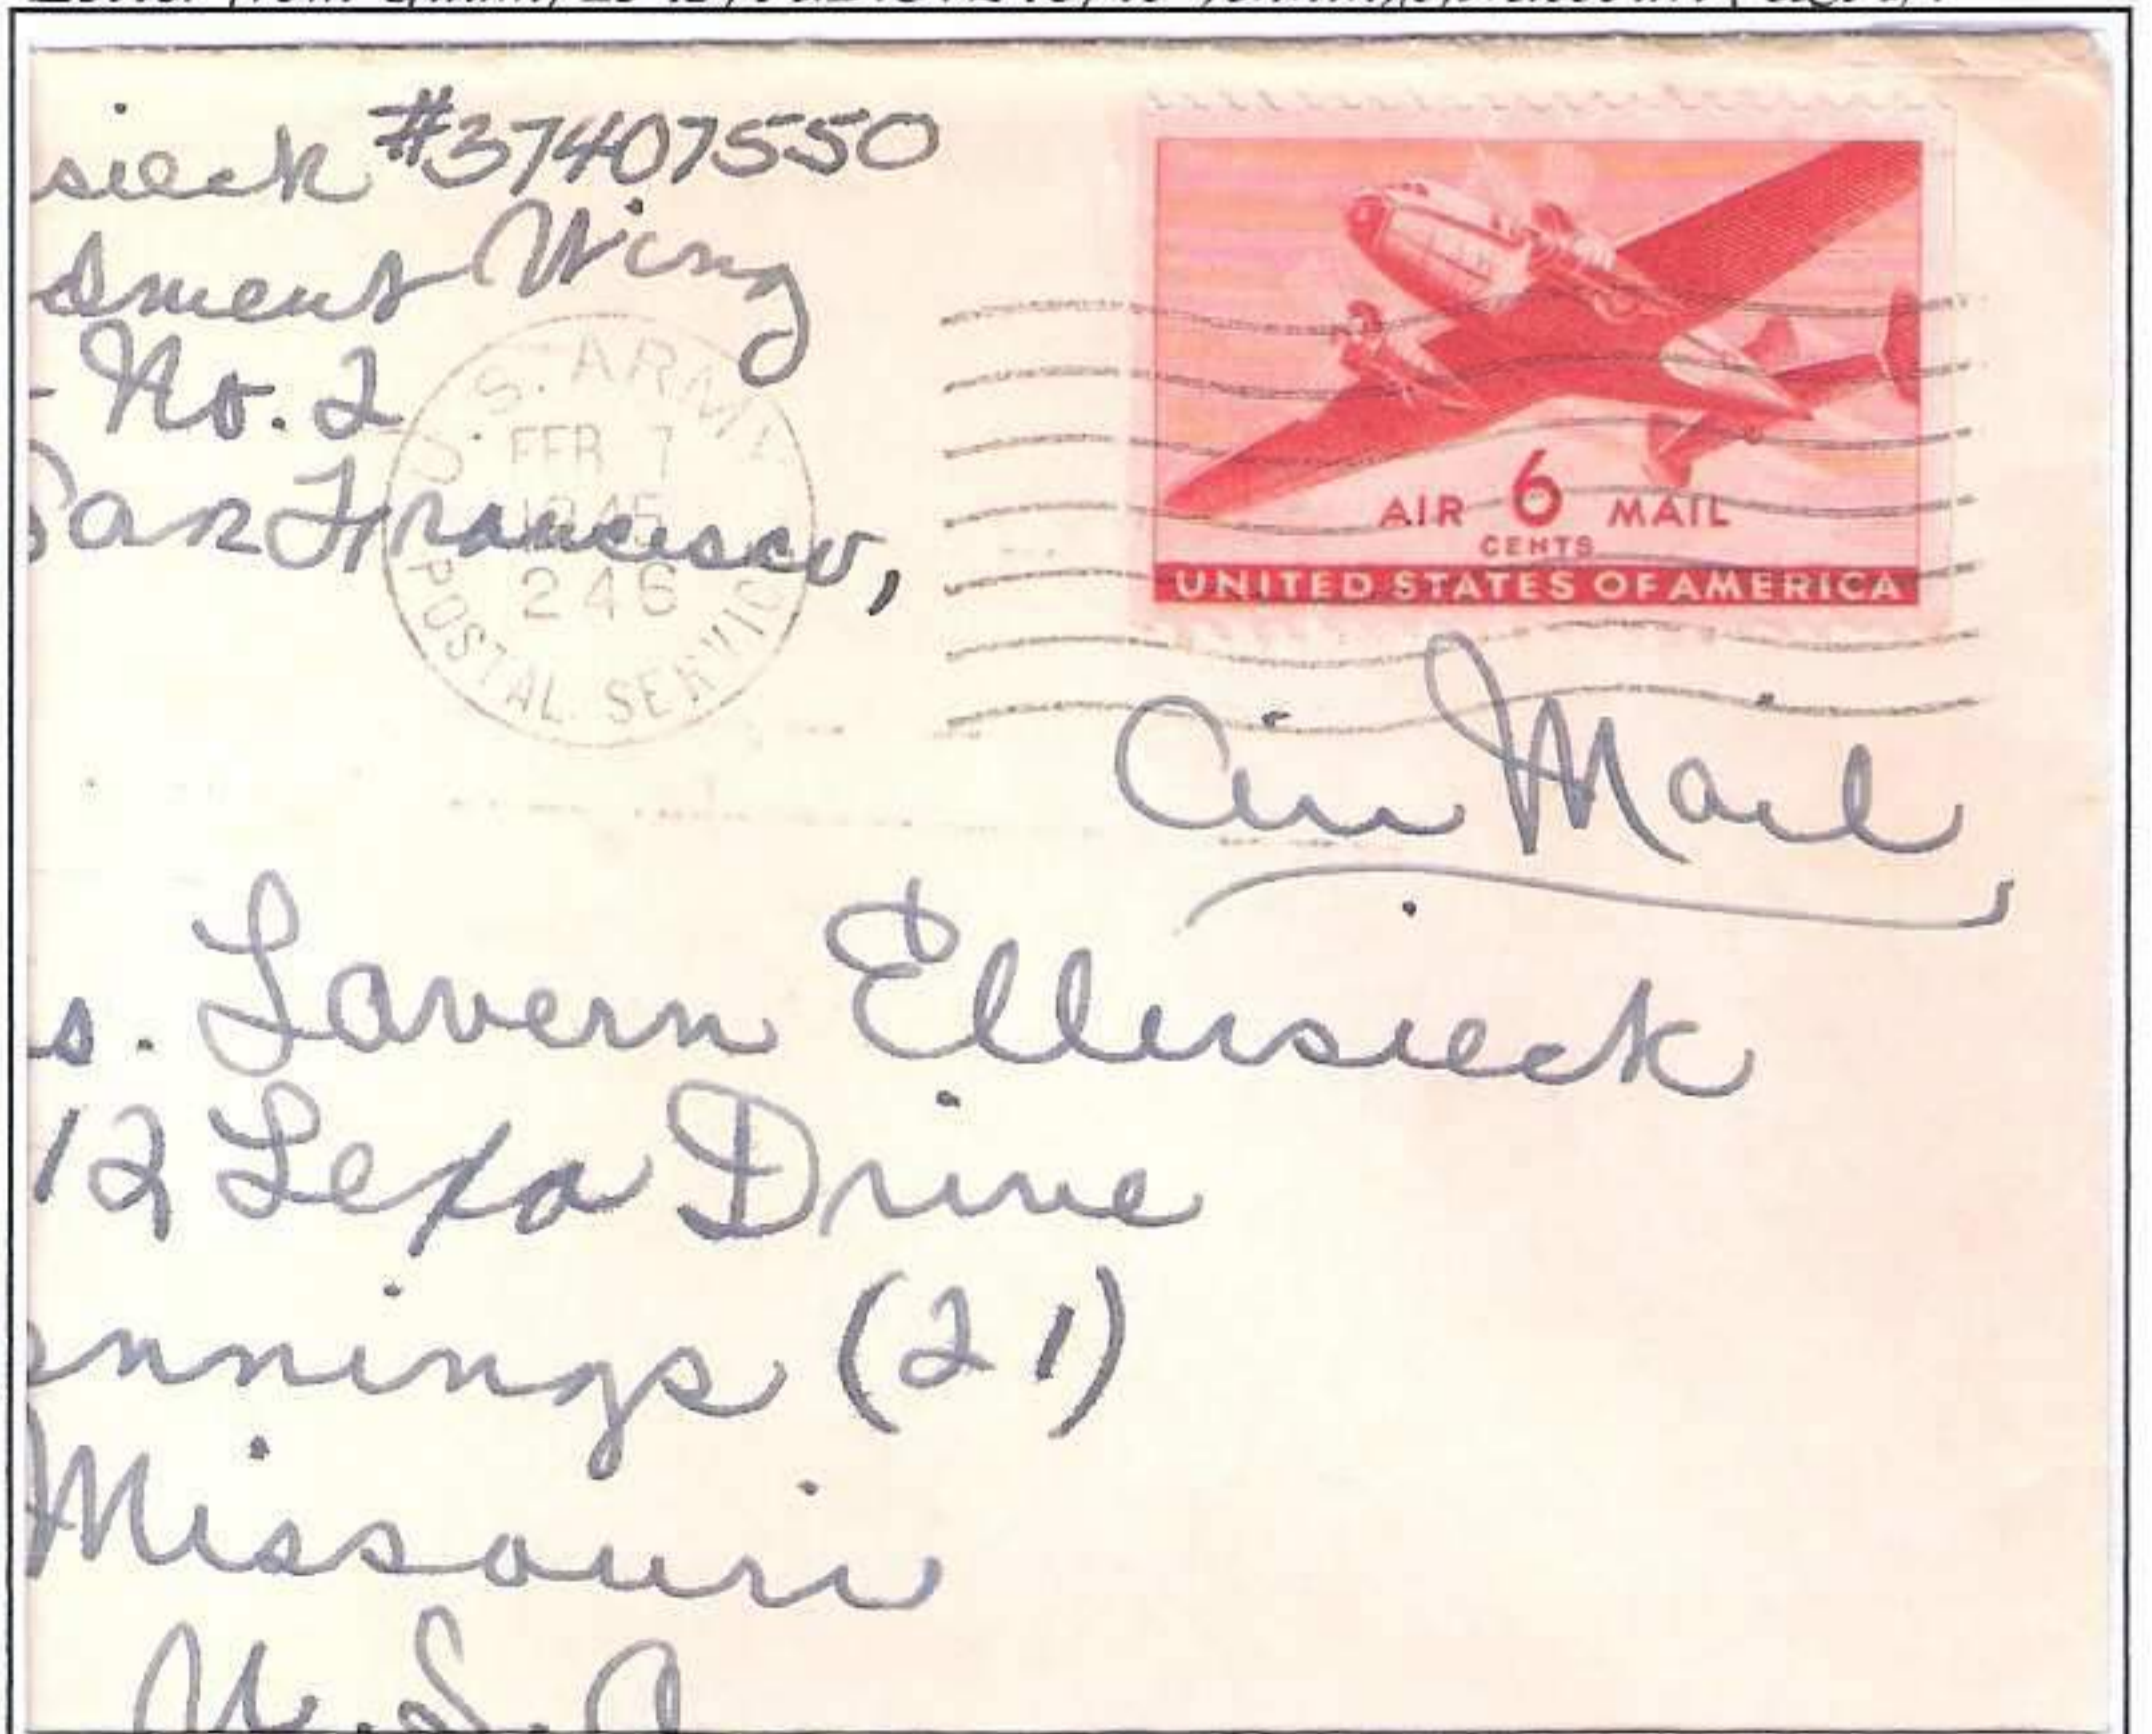 Letter from
sieck #37407550
dment Wing
- No. 2
San Francisco,
U.S. ARMY
FEB 7
1945
246
POSTAL SERVICE
AIR 6 MAIL
CENTS
UNITED STATES OF AMERICA
Air Mail
s. Lavern Ellersieck
12 Lexa Drive
ennings (21)
Missouri
U.S.A